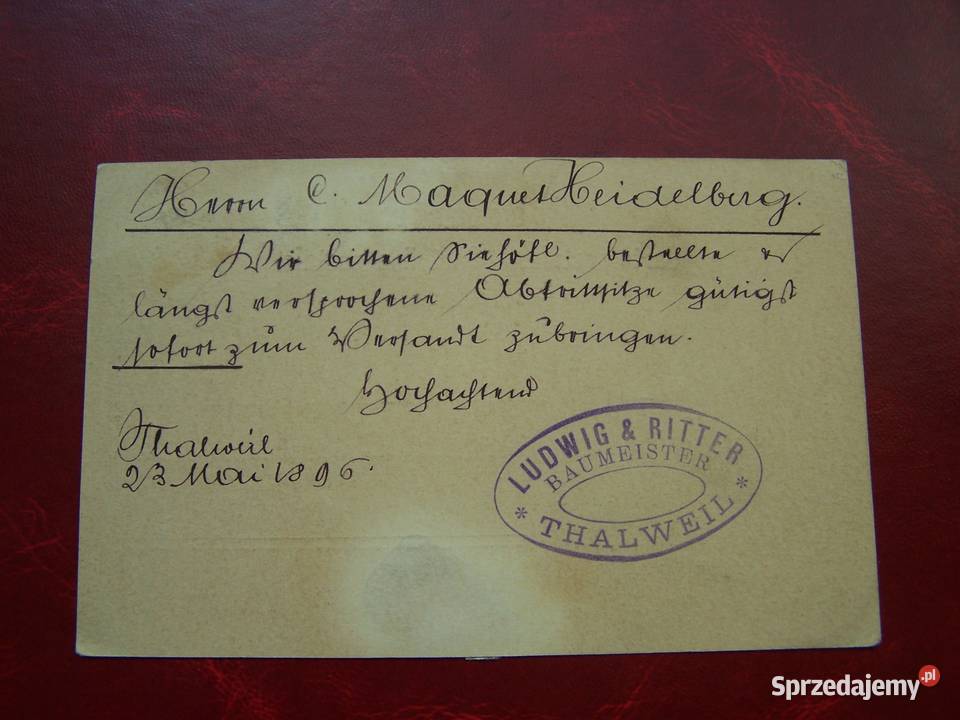 Herrn C. Maquet Heidelberg.
Wir bitten Sie höfl. bestellte &
längst versprochene Abtrittsitze gütigst
sofort zum Versandt zu bringen.
Hochachtend
Thalweil
23 Mai 1896.
LUDWIG & RITTER
BAUMEISTER
* THALWEIL *
Sprzedajemy.pl